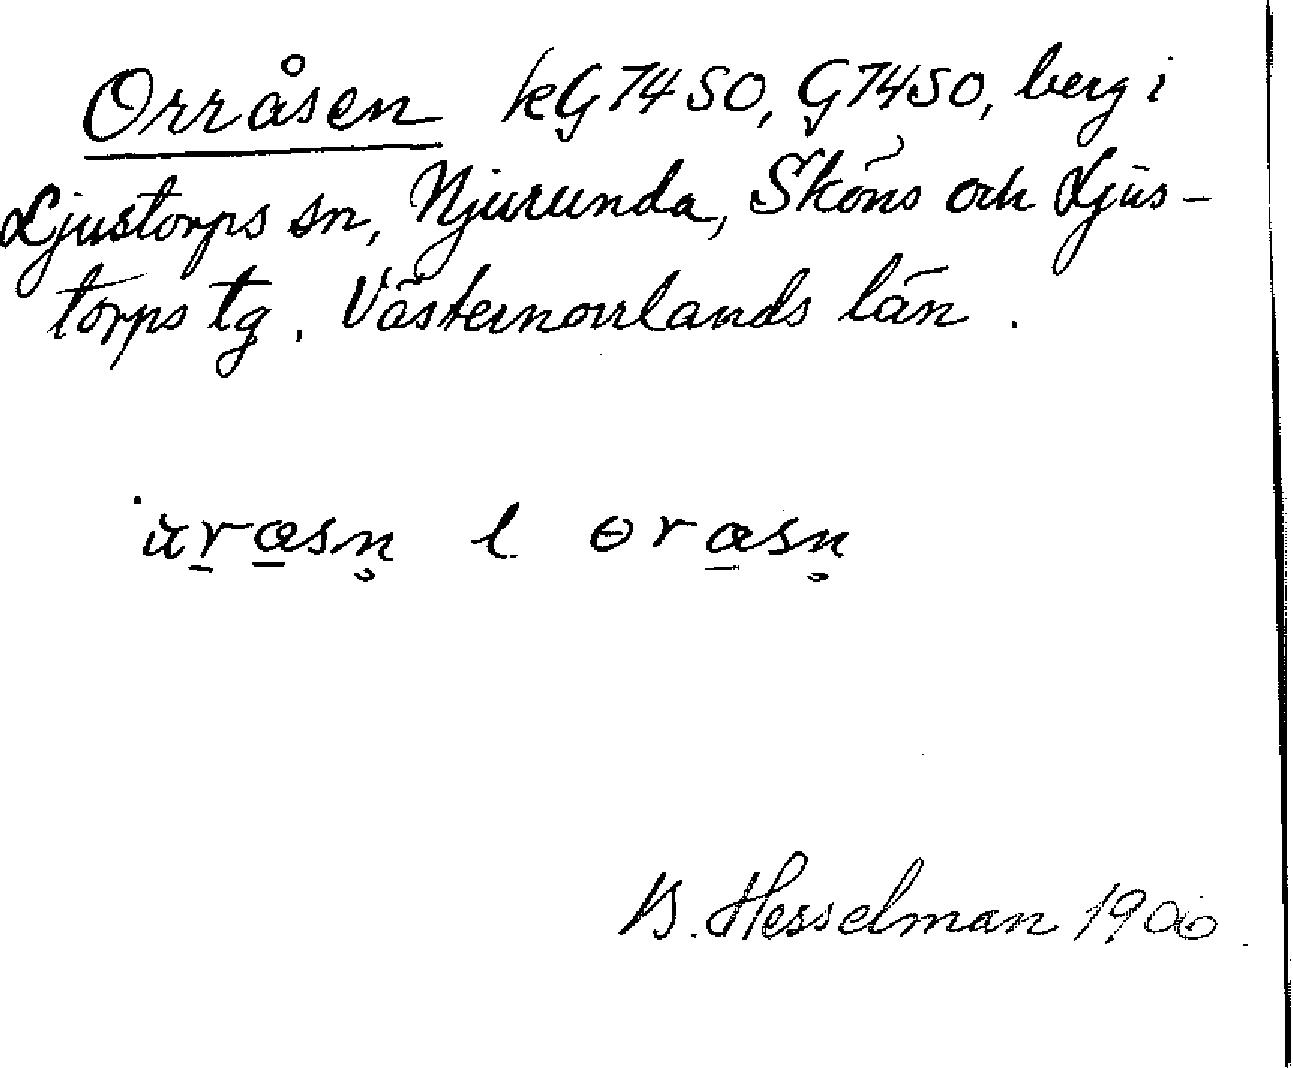 Orråsen kG7450, G7450, berg i
Ljustorps sn, Njurunda, Sköns och Ljus-
torps tg. Västernorrlands län.
l
B. Hesselman 1900.